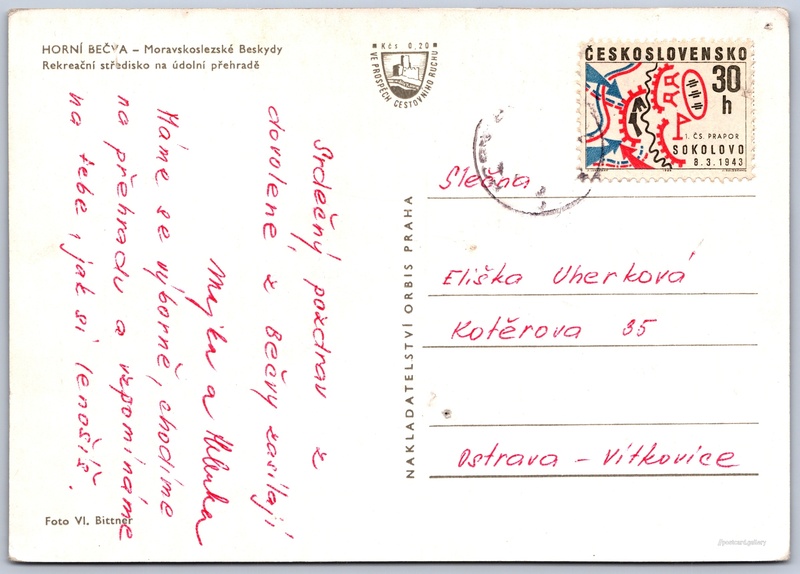 HORNÍ BEČVA – Moravskoslezské Beskydy
Rekreační středisko na údolní přehradě
Kčs 0,20
VE PROSPĚCH CESTOVNÍHO RUCHU
ČESKOSLOVENSKO
30 h
1. ČS. PRAPOR
SOKOLOVO
8.3.1943
Srdečný pozdrav z
dovolené z Bečvy zasílají
Majka a
Máme se výborně, chodíme
na přehradu a vzpomínáme
na tebe, jak si lenošíš.
NAKLADATELSTVÍ ORBIS PRAHA
Slečna
Eliška Uherková
Kotěrova 35
Ostrava – Vítkovice
Foto Vl. Bittner